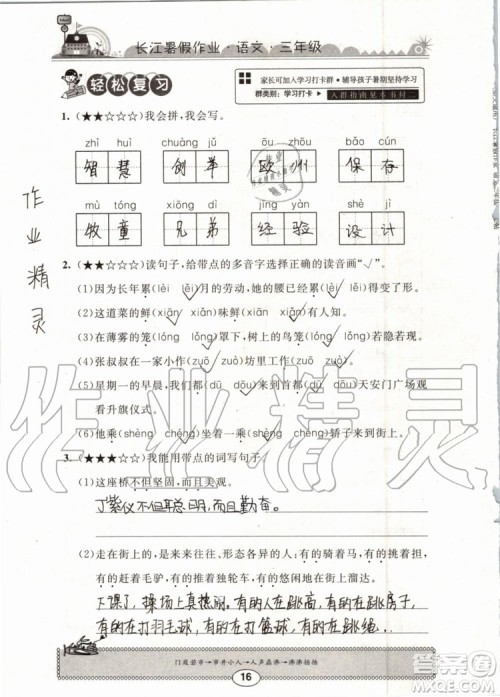 长江暑假作业·语文·三年级
轻松复习
家长可加入学习打卡群·辅导孩子暑期坚持学习
群类别:学习打卡
入群指南见本书封二
1.(★★☆☆☆)我会拼,我会写。
zhì huì chuàng jǔ ōu zhōu bǎo cún
智慧 创举 欧州 保存
mù tóng xiōng dì jīng yàn shè jì
牧童 兄弟 经验 设计
作业精灵
2.(★★☆☆☆)读句子,给带点的多音字选择正确的读音画“√”。
(1)因为长年累(lěi lèi)月的劳动,她的腰已经累(lěi lèi)弯了。
(2)这道菜的鲜(xiān xiǎn)味鲜(xiān xiǎn)有尝到。
(3)在薄雾的笼(lóng lǒng)罩下,树上的鸟笼(lóng lǒng)若隐若现。
(4)张叔叔在一家小作(zuō zuò)坊里工作(zuō zuò)。
(5)星期一的早晨,我们全都(dū dōu)来到首都(dū dōu)天安门广场观
看升旗仪式。
(6)他乘(shèng chéng)着一乘(shèng chéng)轿子来到街上。
3.(★★★☆☆)我能用带点的词写句子。
(1)这座桥不但坚固,而且美观。
丁紫仪不但聪明,而且勤奋。
(2)走在街上的,是来来往往、形态各异的人:有的骑着马,有的挑着担,
有的赶着毛驴,有的推着独轮车,有的悠闲地在街上溜达。
下课了,操场上真热闹。有的人在跳高,有的人在跳房子,
有的在打羽毛球,有的人在打篮球,有的人在跳绳。
门庭若市→市井小人→人声鼎沸→沸沸扬扬
16
作业精灵